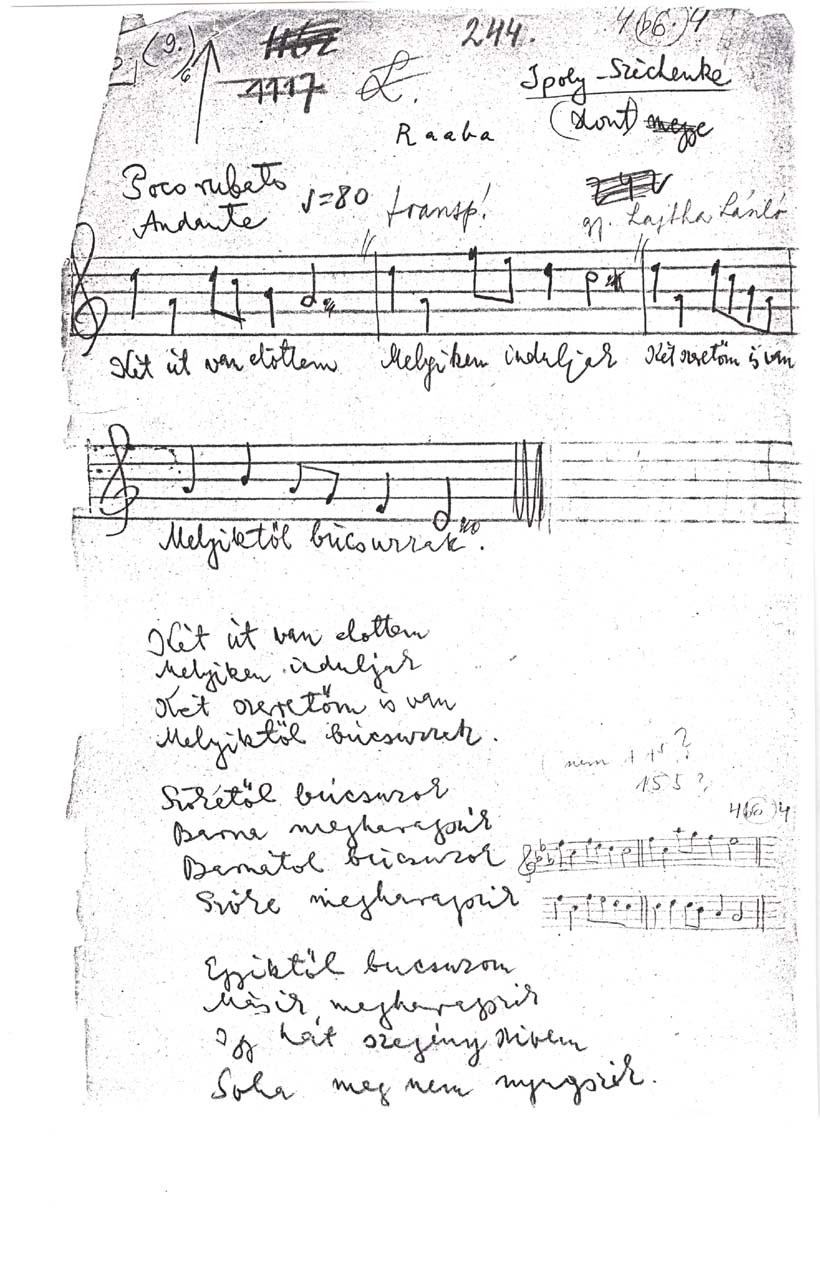 (9.)/6
244.
4(b6.)4
1117
L.
Ipoly-Széchenke
(Hont)
Raaba
Poco rubato
♩=80
transp!
Andante
gy. Lajtha László
Két út van előttem Melyiken induljak Két szeretőm is van
Melyiktől búcsuzzak.
Két út van előttem
Melyiken induljak
Két szeretőm is van
Melyiktől búcsuzzak.
(nem
155?
4(b6)4
Szőkétől búcsuzok
Barna megharagszik
Barnátol búcsuzok
Szőke megharagszik
Egyiktől bucsuzom
Másik megharagszik
Igy hát szegény szivem
Soha meg nem nyugszik.